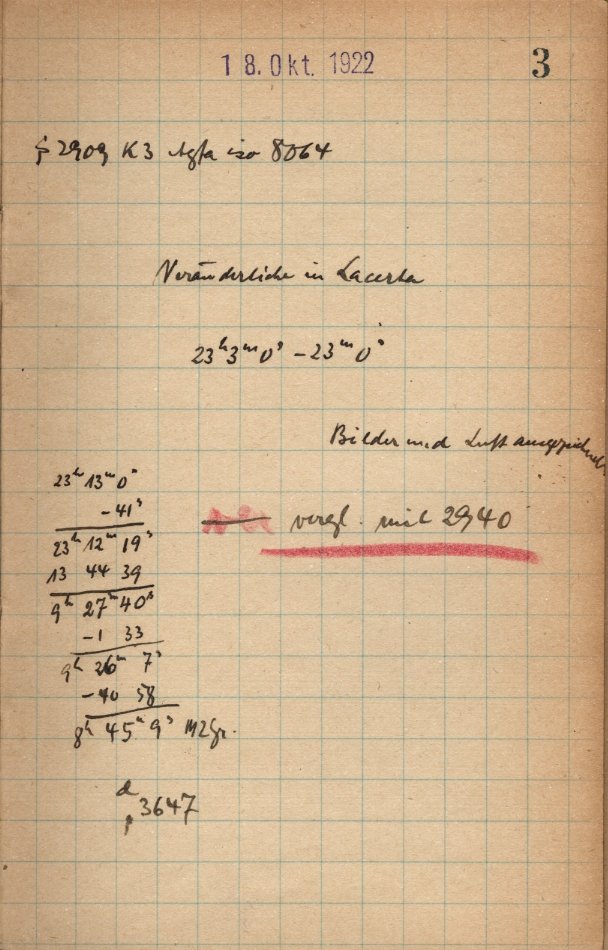 18. Okt. 1922
3
2909 K3 Agfa iso 8064
Veränderliche in Lacerta
23ʰ3ᵐ0ˢ – 23ᵐ0ˢ
Bilder und Luft ausgezeichnet
23ʰ 13ᵐ 0ˢ
-41ˢ
vergl. mit 2940
23ʰ 12ᵐ 19ˢ
13 44 39
9ʰ 27ᵐ 40ˢ
-1 33
9ʰ 26ᵐ 7ˢ
-40 58
8ʰ 45ᵐ 9ˢ MZGr.
3647